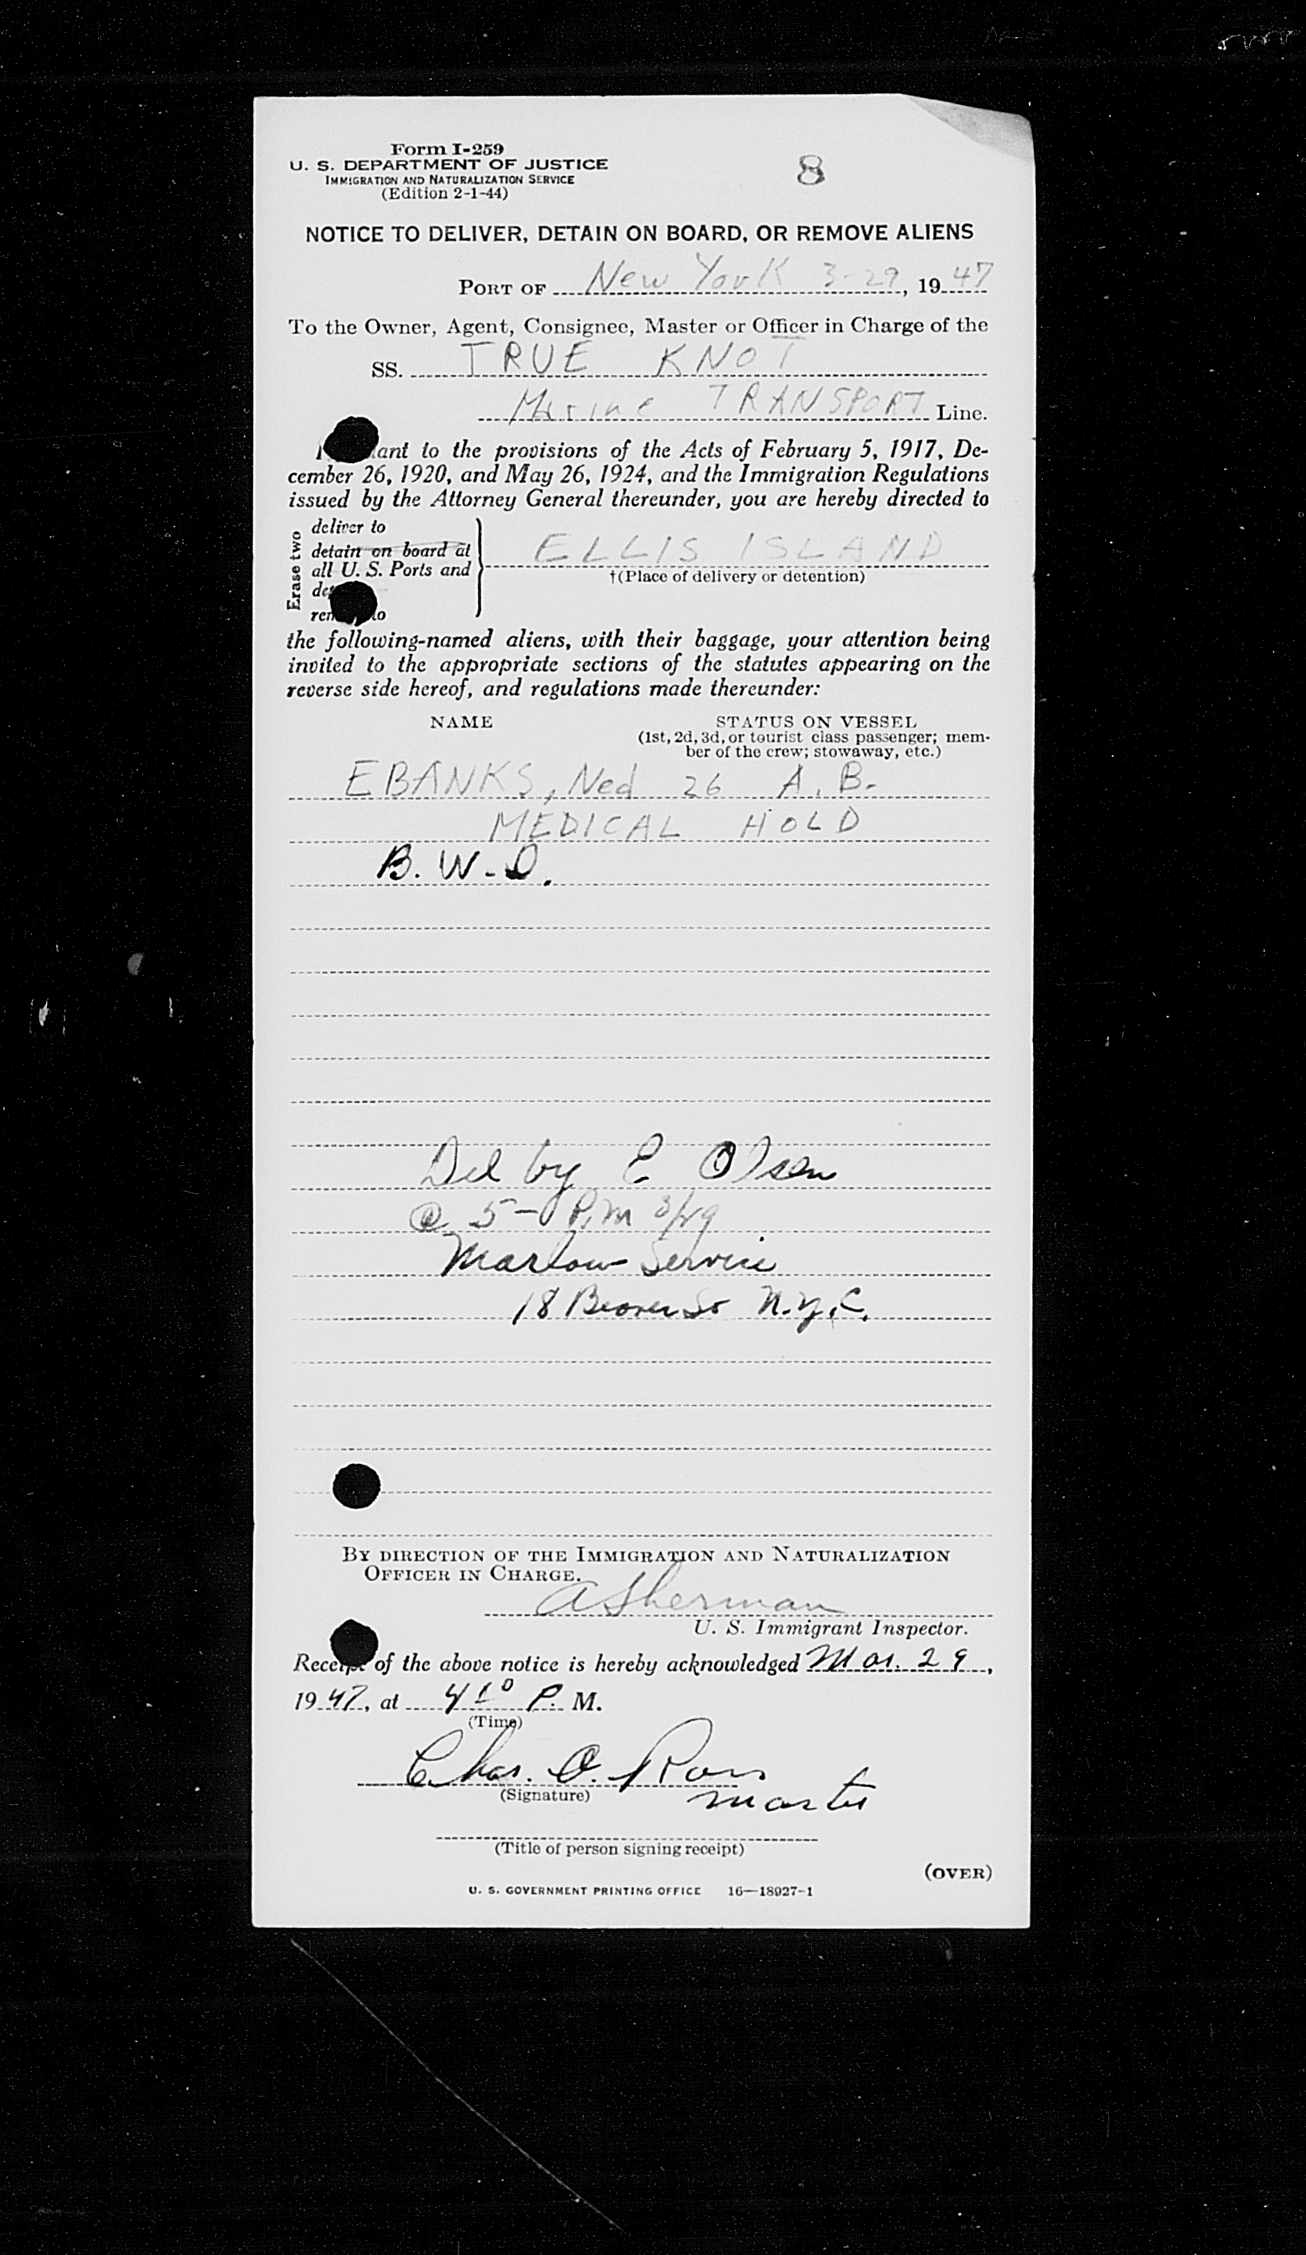 Form I-259
U. S. DEPARTMENT OF JUSTICE
IMMIGRATION AND NATURALIZATION SERVICE
(Edition 2-1-44)
8
NOTICE TO DELIVER, DETAIN ON BOARD, OR REMOVE ALIENS
PORT OF New York 3-29, 1947
To the Owner, Agent, Consignee, Master or Officer in Charge of the
SS. TRUE KNOT
Marine TRANSPORT Line.
ant to the provisions of the Acts of February 5, 1917, De-
cember 26, 1920, and May 26, 1924, and the Immigration Regulations
issued by the Attorney General thereunder, you are hereby directed to
Erase two
deliver to
detain on board at
all U. S. Ports and
de
rem to
ELLIS ISLAND
†(Place of delivery or detention)
the following-named aliens, with their baggage, your attention being
invited to the appropriate sections of the statutes appearing on the
reverse side hereof, and regulations made thereunder:
NAME STATUS ON VESSEL
(1st, 2d, 3d, or tourist class passenger; mem-
ber of the crew; stowaway, etc.)
EBANKS, Ned 26 A. B.
MEDICAL HOLD
B. W.
Del by E Olsen
@ 5- P.M 3/29
Marlow Service
18 Beaver St N.Y.C.
BY DIRECTION OF THE IMMIGRATION AND NATURALIZATION
OFFICER IN CHARGE.
A Sherman
U. S. Immigrant Inspector.
Receipt of the above notice is hereby acknowledged Mar. 29,
1947, at P. M.
(Time)
Chas. O. Ross
(Signature)
Master
(Title of person signing receipt)
(OVER)
U. S. GOVERNMENT PRINTING OFFICE 16—18927-1